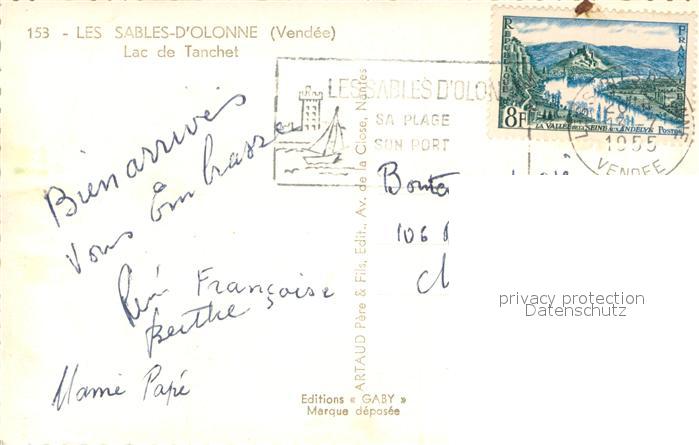 153 - LES SABLES-D'OLONNE (Vendée)
Lac de Tanchet
LES SABLES D'OLON
SA PLAGE
SON PORT
RÉPUBLIQUE FRANÇAISE
8F
LA VALLÉE DE LA SEINE AUX ANDELYS
Postes
1955
VENDEE
Bien arrivés
vous Embrasse
Françoise
Berthe
Mamie Papé
106
privacy protection
Datenschutz
ARTAUD Père & Fils, Edit., Av. de la Close, Nantes
Editions « GABY »
Marque déposée